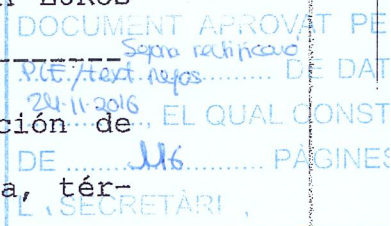 EUROS
DOCUMENT APROVAT PE
Segona rectificació
P.I.E./text refós DE DAT
24-11-2016, EL QUAL CONST
ción de
DE 116 PÀGINES
a, tér-
SECRETARI,